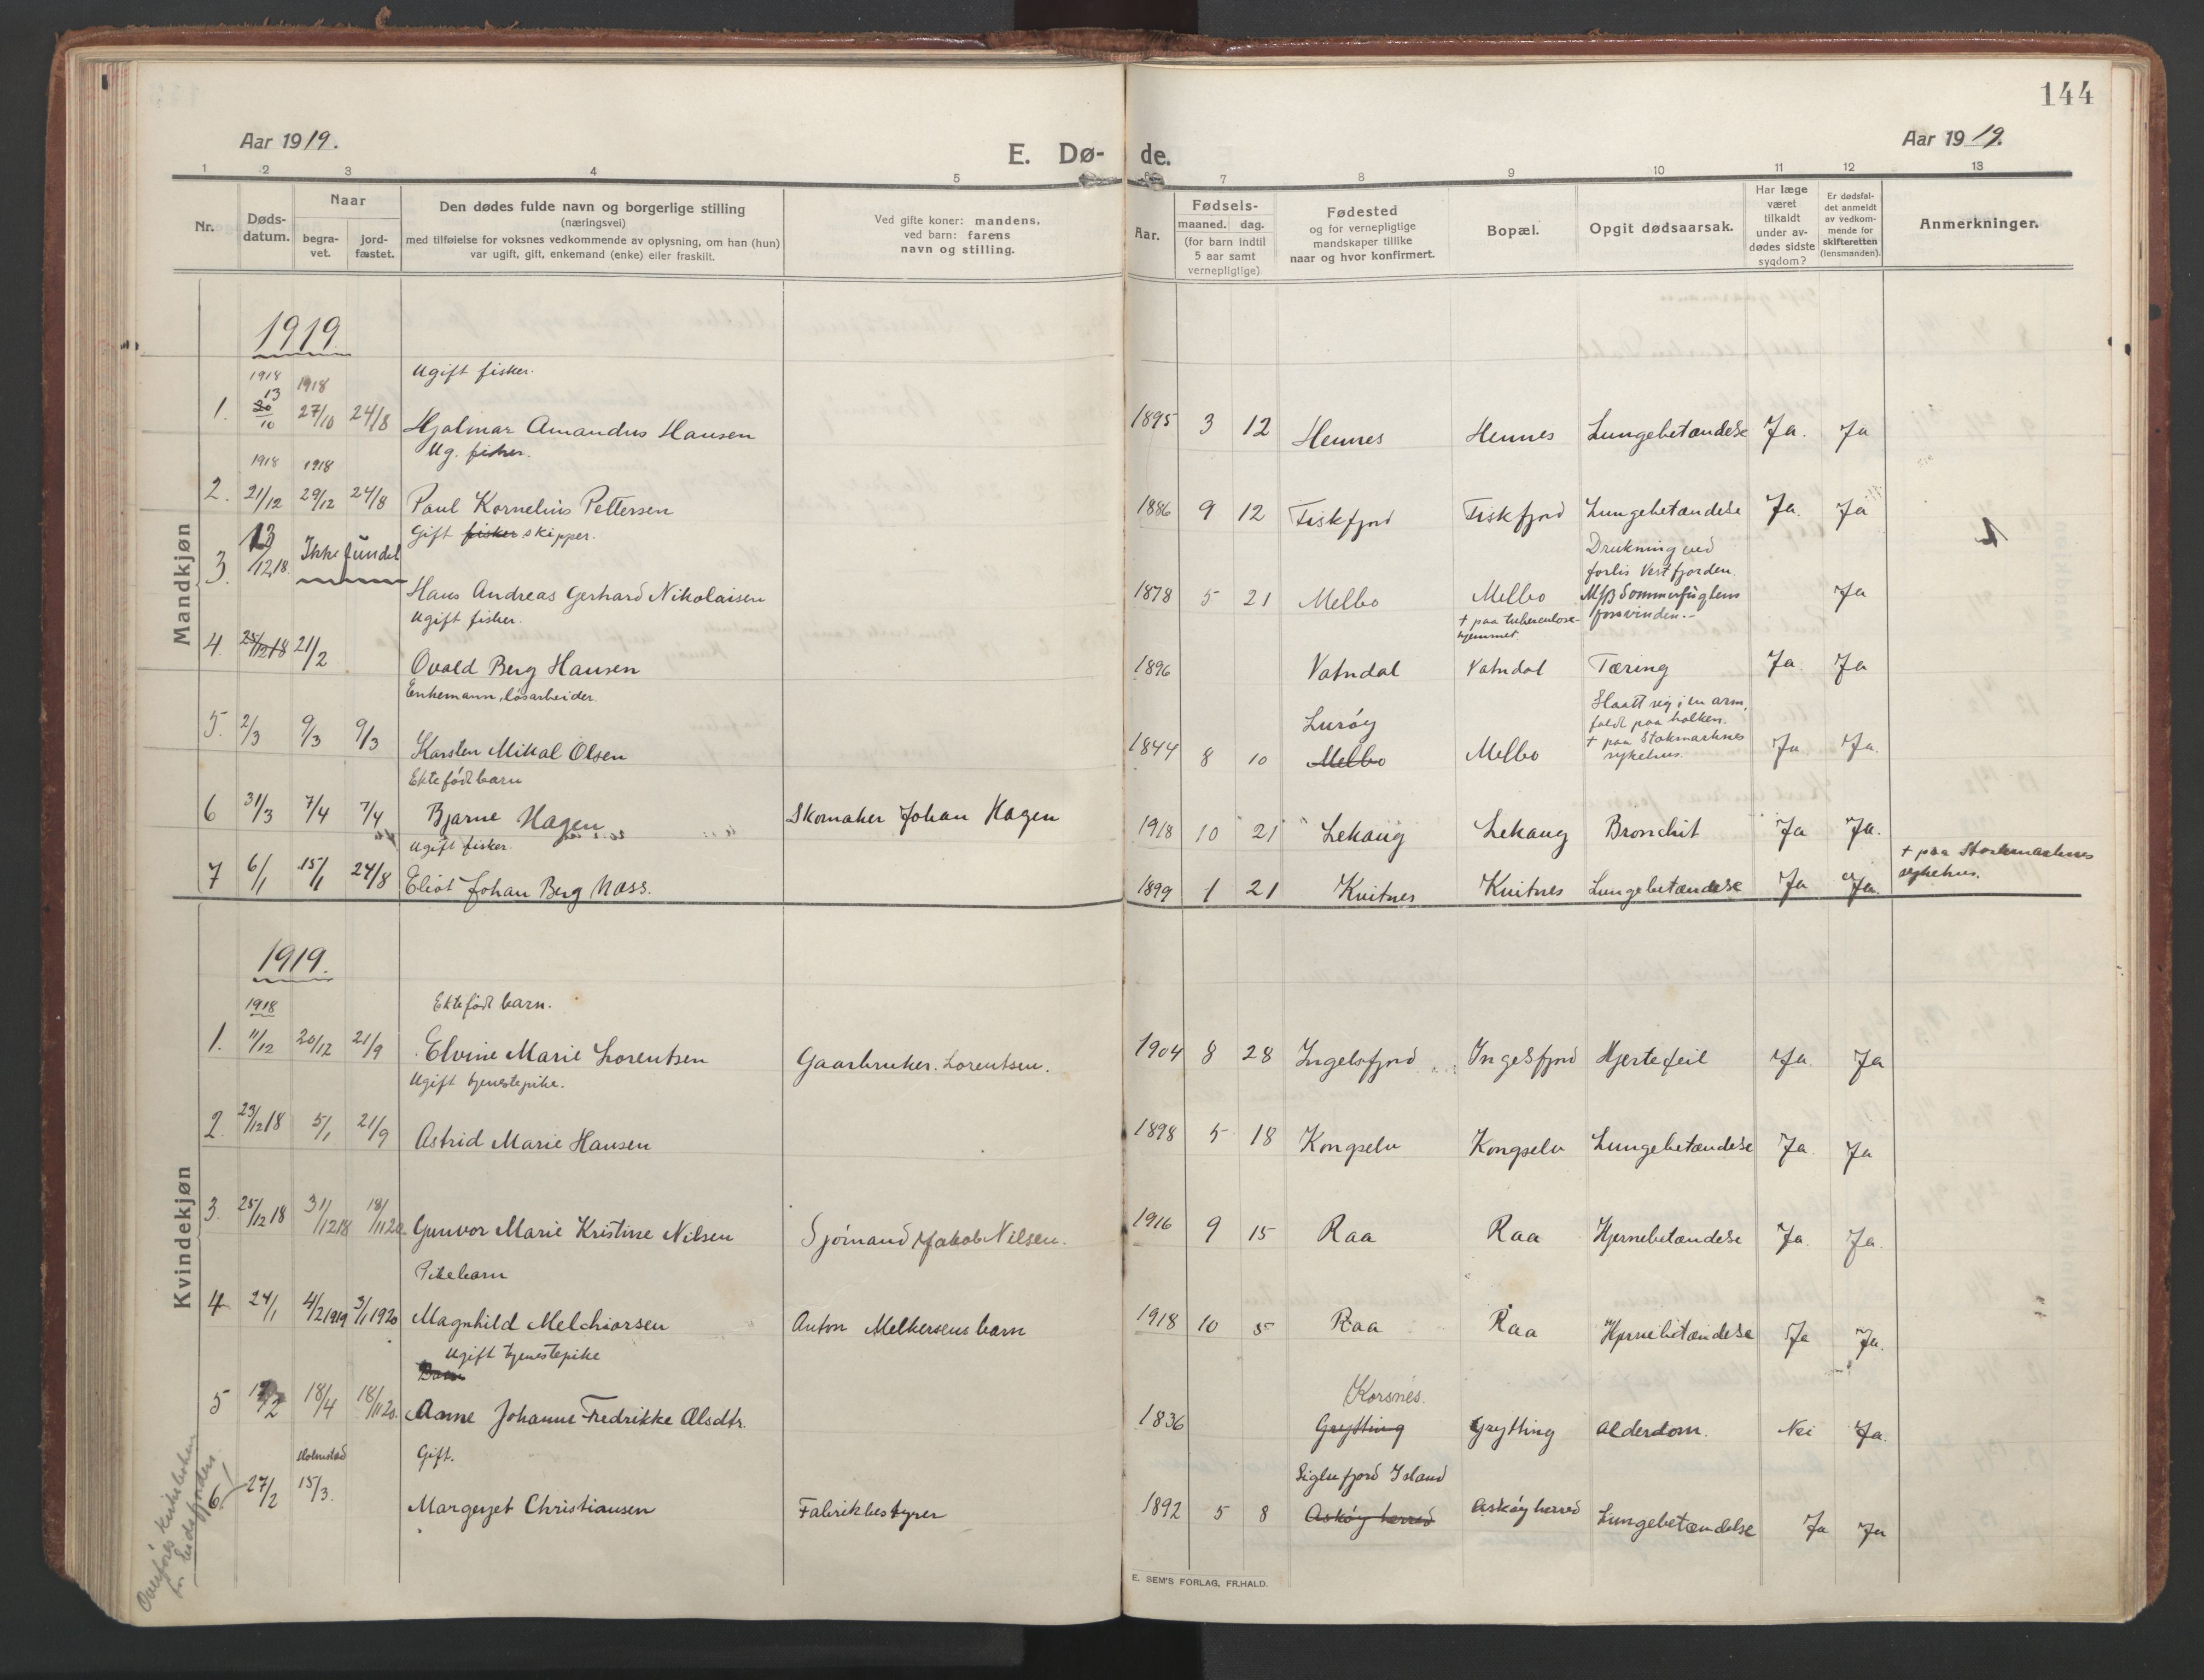 144
Aar 1919.
E. Dø- de.
Aar 1919.
1 2 3 4 5 7 8 9 10 11 12 13
Nr.
Døds-
datum.
Naar
begra-
vet.
jord-
fæstet.
Den dødes fulde navn og borgerlige stilling
(næringsvei)
med tilføielse for voksnes vedkommende av oplysning, om han (hun)
var ugift, gift, enkemand (enke) eller fraskilt.
Ved gifte koner: mandens,
ved barn: farens
navn og stilling.
Aar.
Fødsels-
maaned. dag.
(for barn indtil
5 aar samt
vernepligtige)
Fødested
og for vernepligtige
mandskaper tillike
naar og hvor konfirmert.
Bopæl.
Opgit dødsaarsak.
Har læge
været
tilkaldt
under av-
dødes sidste
sygdom?
Er dødsfal-
det anmeldt
av vedkom-
mende for
skifteretten
(lensmanden).
Anmerkninger.
Mandkjøn
1919.
Ugift fisker.
1918 1918
1. 13 30/10 27/10 24/8 Hjalmar Amandus Hansen 1895 3 12 Hennes Hennes Lungebetændelse Ja. Ja
Ug. fisker.
1918 1918
2. 21/12 29/12 24/8 Paul Kornelius Pettersen 1886 9 12 Fiskfjord Fiskfjord Lungebetændelse Ja. Ja
Gift fisker skipper.
Drukning ved
forlis Vestfjorden.
3. 13/12 18. Ikke fundet Hans Andreas Gerhard Nikolaisen 1878 5 21 Melbo Melbo M/B Sommerfuglens Ja
forsvinden.
Ugift fisker.
+ paa tuberculose-
hjemmet.
4. 25/12 18 21/2 Ovald Berg Hansen 1896 Vatndal Vatndal Tæring Ja. Ja
Enkemann, løsarbeider.
Slaatt sig i en arm,
faldt paa holken.
Lurøy
+ paa Stokmarknes
sykehus.
5. 2/3 9/3 9/3 Karsten Mikal Olsen 1844 8 10 Melbo Melbo Ja Ja.
Ektefødt barn
6 31/3 7/4 7/4 Bjarne Hagen Skomaker Johan Hagen 1918 10 21 Lekang Lekang Bronchit Ja Ja.
Ugift fisker.
+ paa Stokmarknes
sykehus.
7 6/1 15/1 24/8 Eliot Johan Berg Næss. 1899 1 21 Kvitnes Kvitnes Lungebetændelse Ja Ja.
Kvindekjøn
1919.
1918
Ektefødt barn.
1. 11/12 20/12 21/9 Elvine Marie Lorentsen Gaarbruker. Lorentsen. 1904 8 28 Ingelsfjord Ingelsfjord Hjertefeil Ja. Ja
Ugift tjenestepike.
2. 23/12 18 5/1 21/9 Astrid Marie Hansen 1898 5 18 Kongselv Kongselv Lungebetændelse Ja. Ja
3. 25/12 18 31/12 18 18/11 20. Gunvor Marie Kristine Nilsen Sjømand Jakob Nilsen. 1916 9 15 Raa Raa Hjernebetændelse Ja. Ja.
Pikebarn
4 24/1 4/2 1919 3/1 1920 Magnhild Melchiorsen Anton Melkersens barn 1918 10 5 Raa Raa Hjernebetændelse Ja Ja.
Ugift tjenestepike
Barn
Korsnes.
5 18/4 18/11 20. Anne Johanne Fredrikke Olsdtr. 1836 Grytting Grytting Alderdom. Nei Ja.
Holmstad
Gift.
Siglufjord Island
6. 27/2 15/3. Margeyet Christiansen Fabrikbestyrer 1892 5 8 Askøy herred Askøy herred Lungebetændelse Ja Ja
Overføres kirkeboken
for Eidsfjorden.
E. SEM'S FORLAG, FR.HALD.